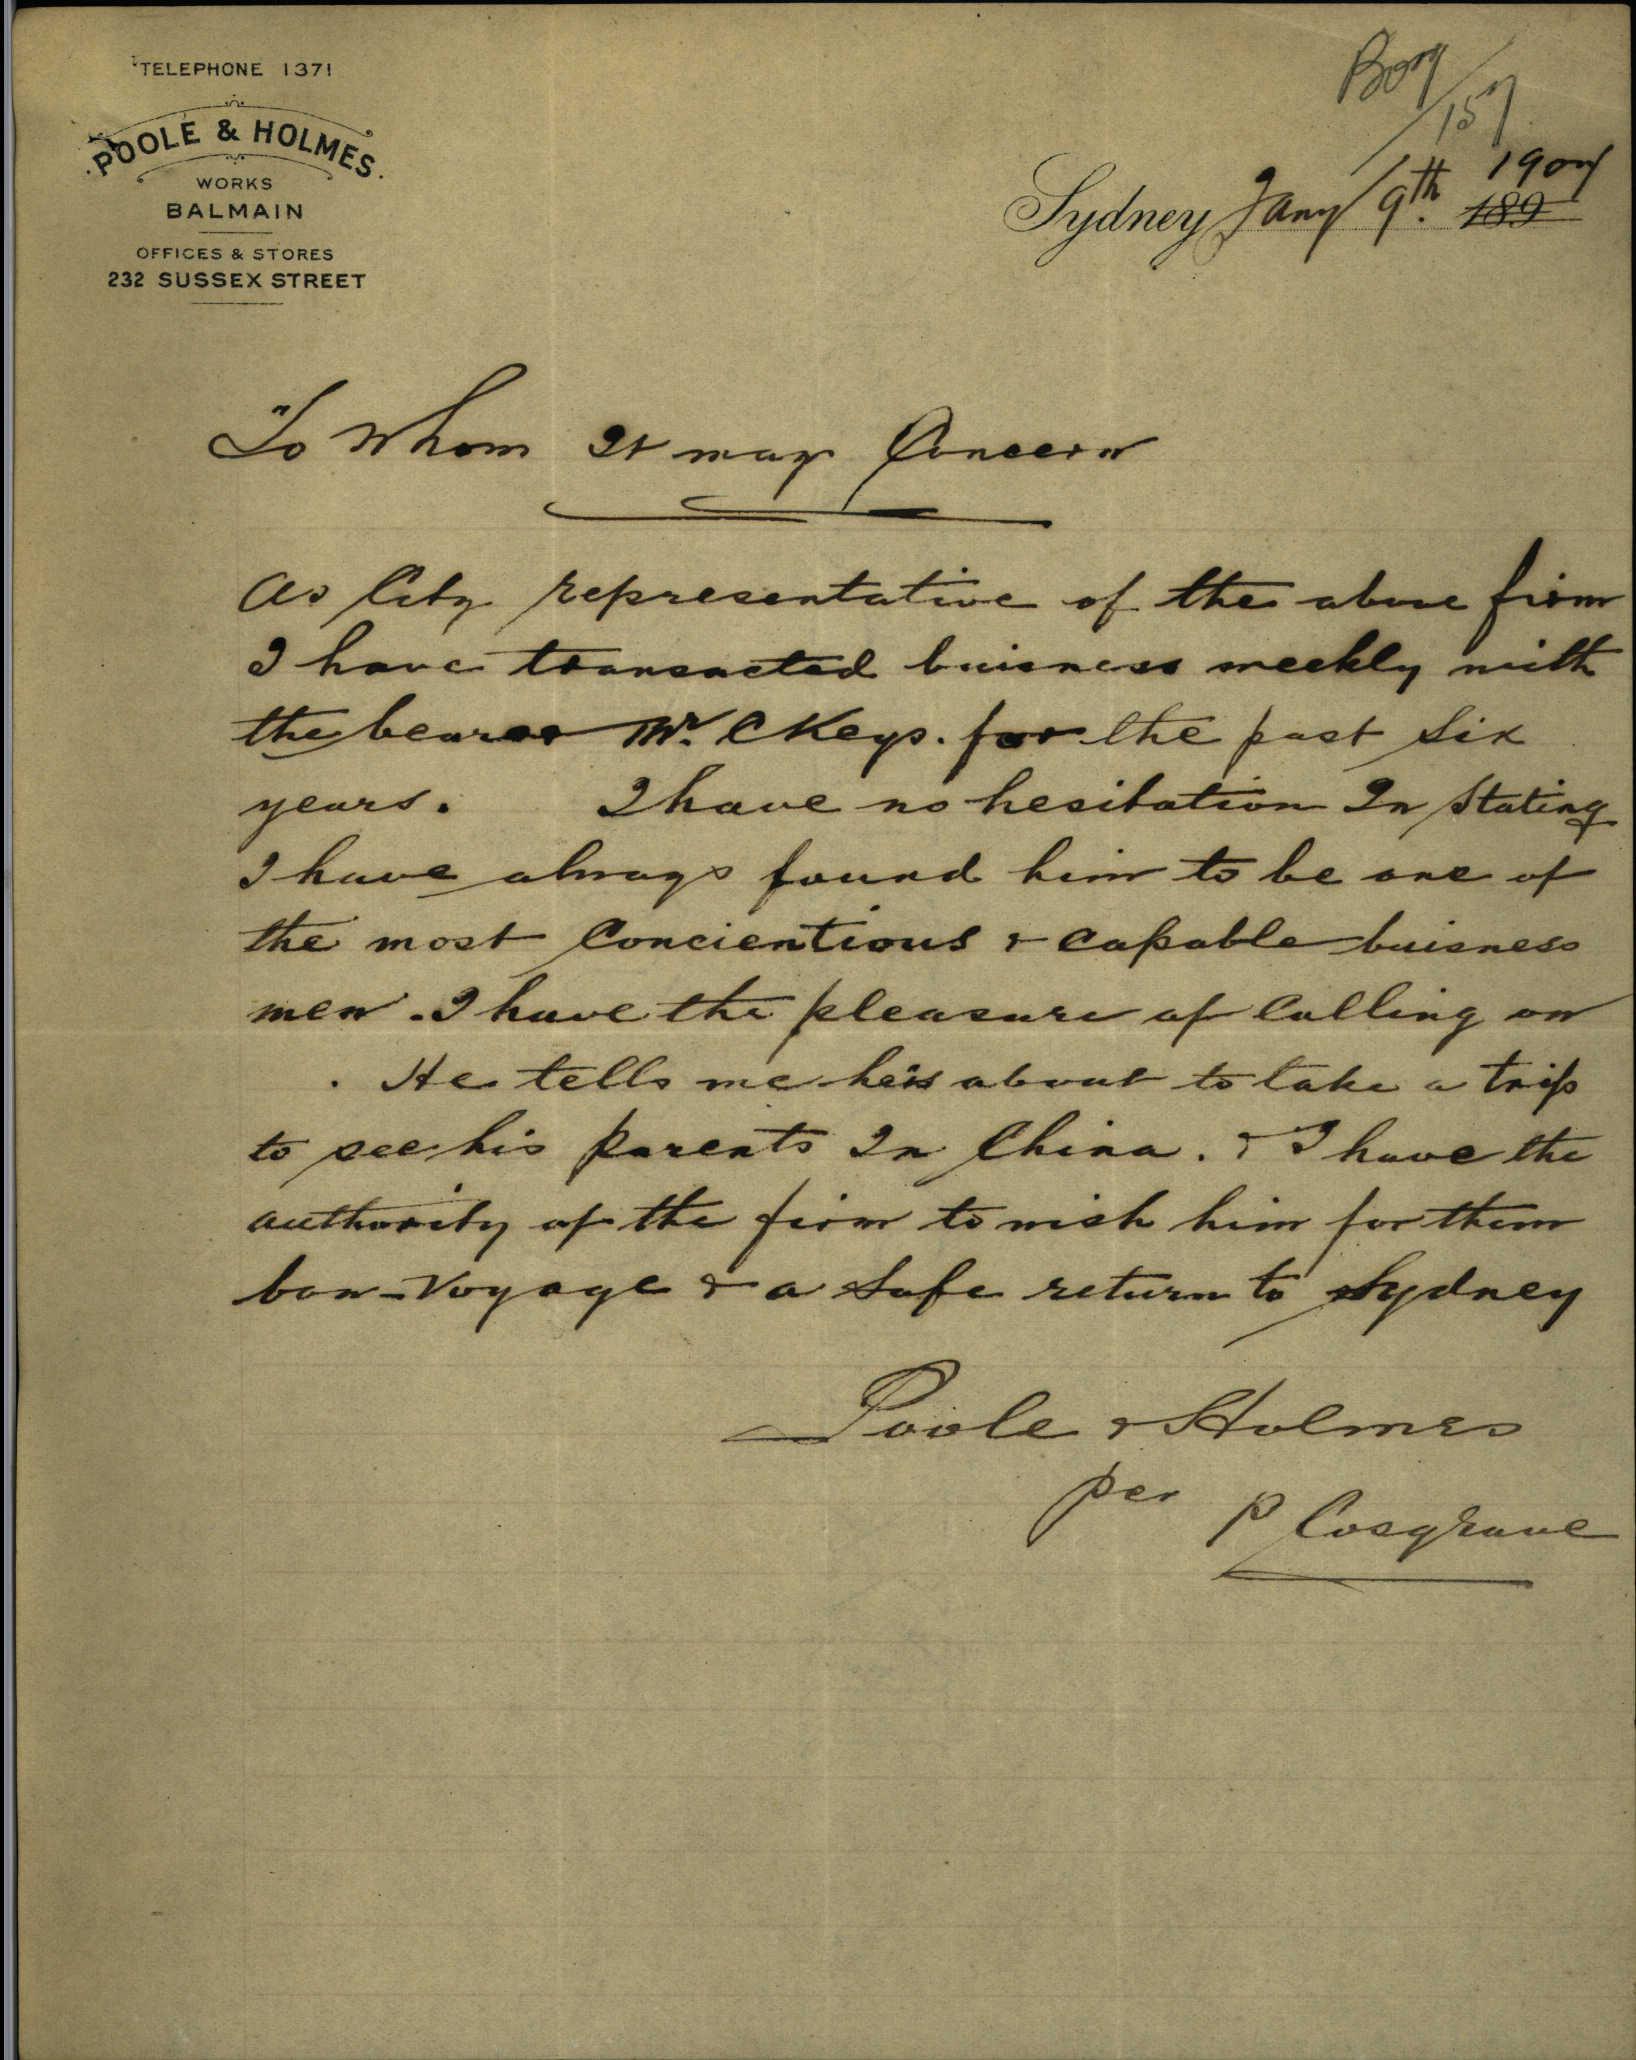 TELEPHONE 1371
POOLE & HOLMES.
WORKS
BALMAIN
OFFICES & STORES
232 SUSSEX STREET
157
1907
Sydney Jany 9th. 189
To Whom It may Concern
As City representative of the above firm
I have transacted buisness weekly with
the bearer Mr. C Keys. for the past six
years. I have no hesitation In Stating
I have always found him to be one of
the most Concientious & capable buisness
men. I have the pleasure of Calling on
. He tells me he is about to take a trip
to see his parents In China. & I have the
authority of the firm to wish him for them
bon-voyage & a safe return to Sydney
Poole & Holmes
per P Cosgrave